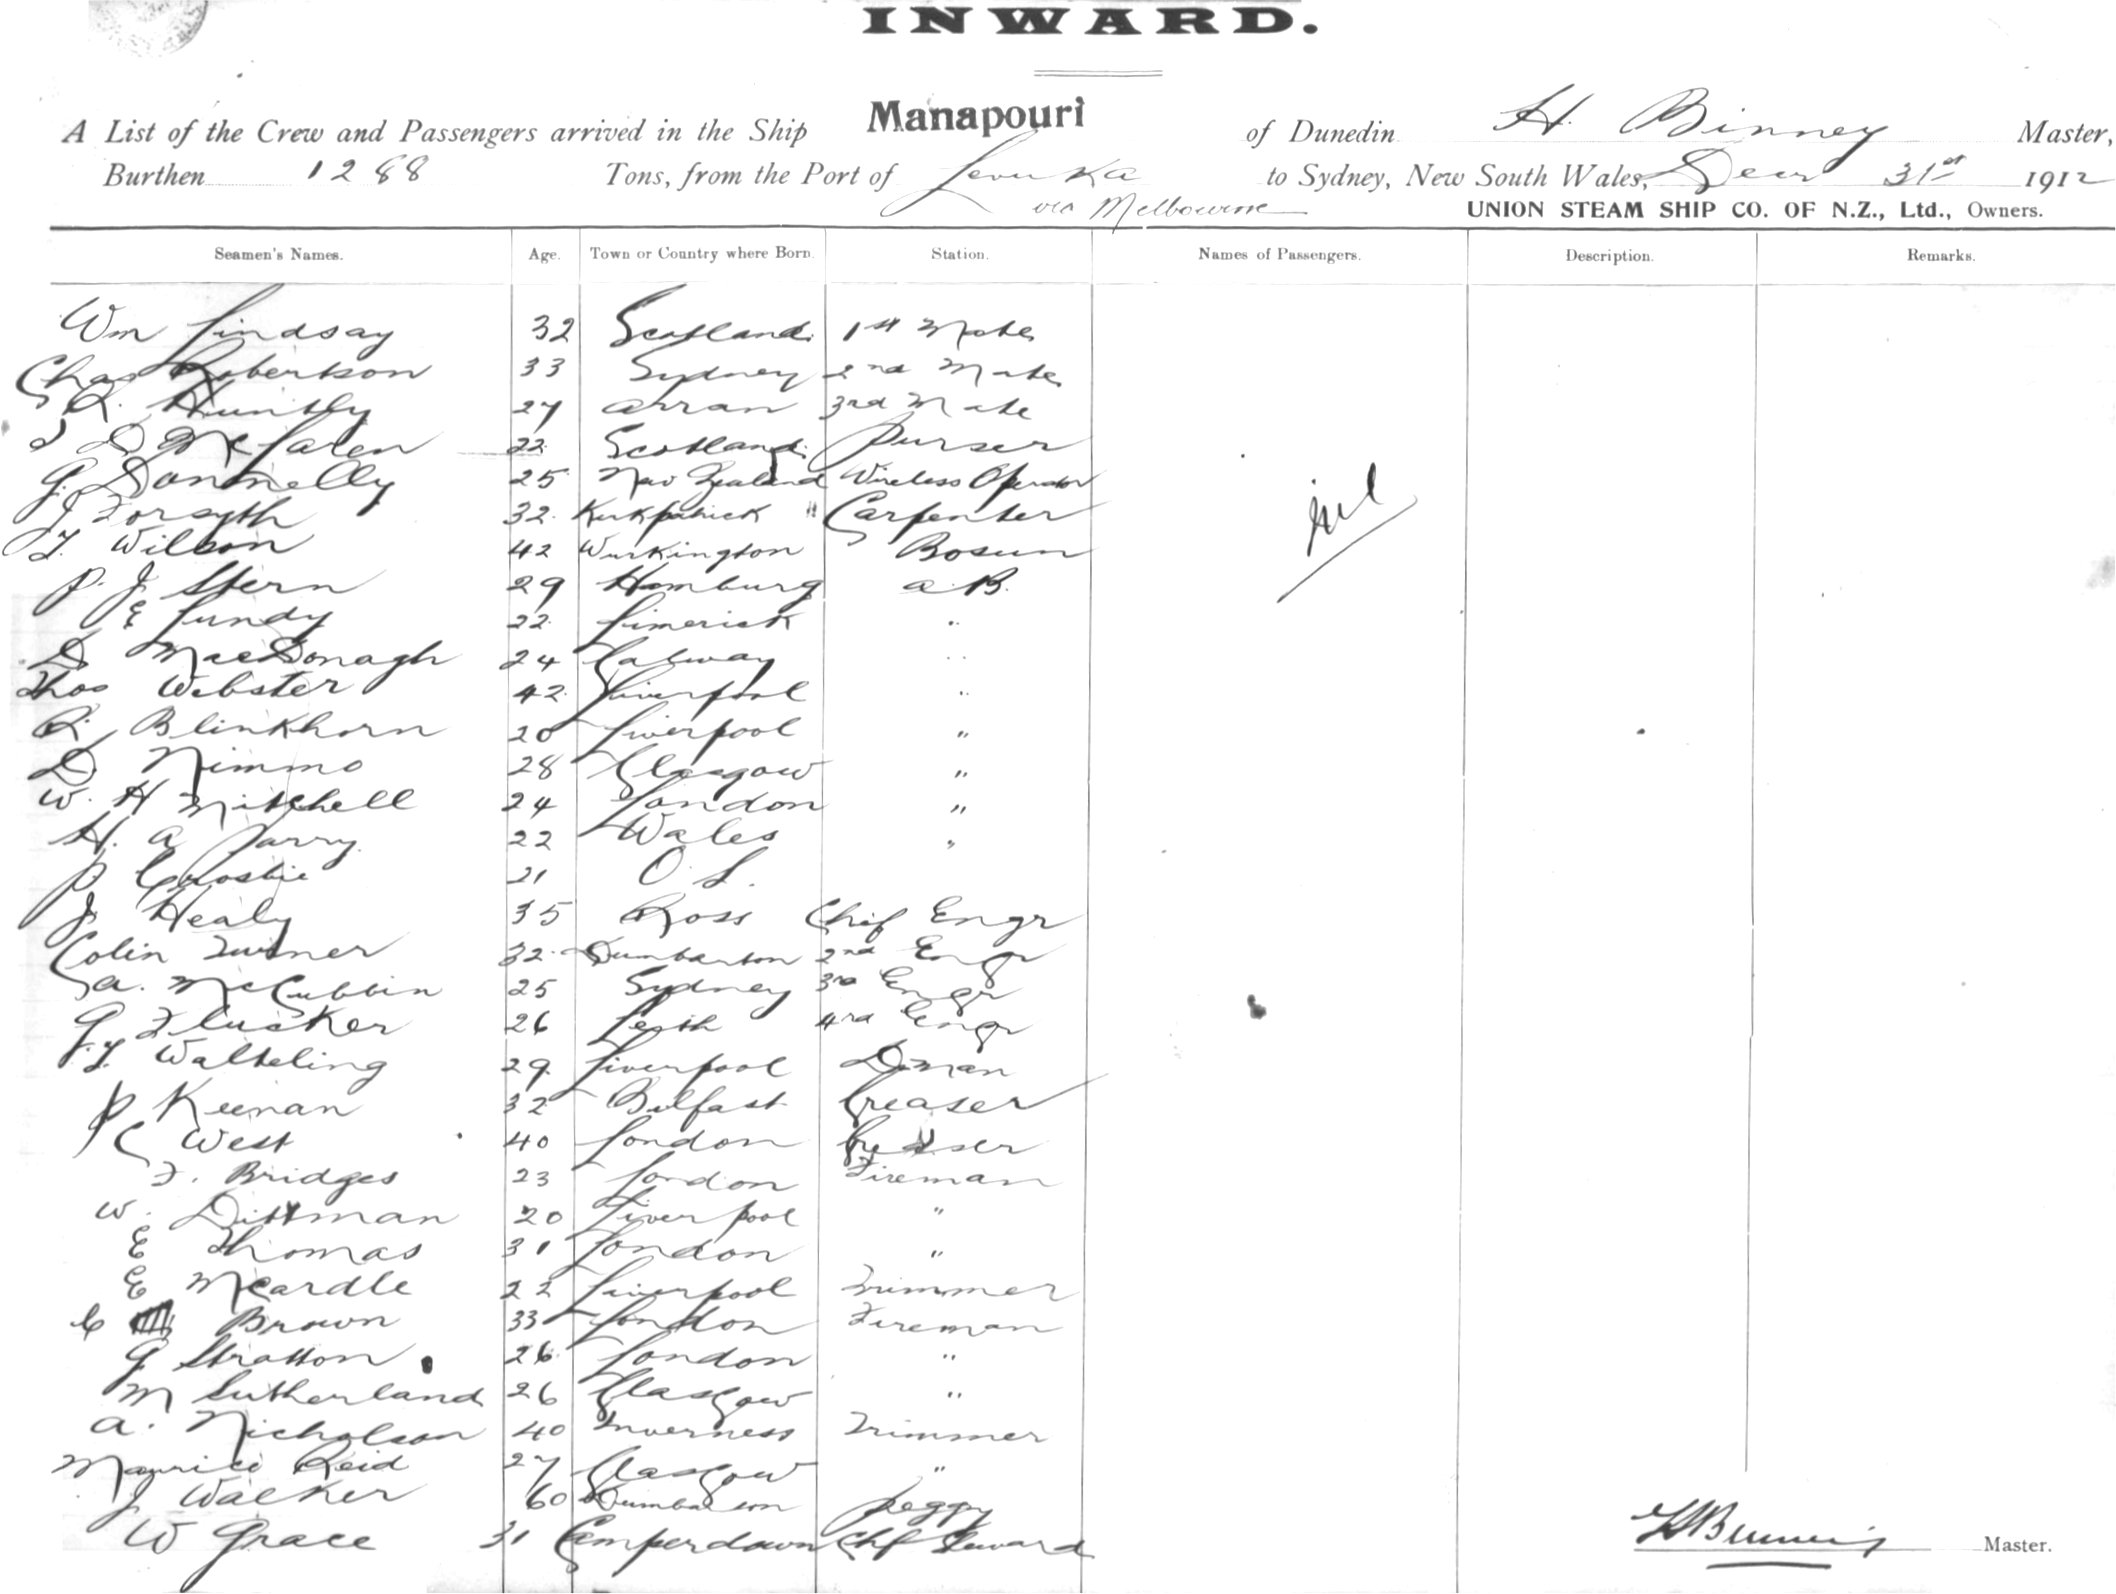 INWARD.
A List of the Crew and Passengers arrived in the Ship Manapouri of Dunedin H. Binney Master,
Burthen 1288 Tons, from the Port of Levuka to Sydney, New South Wales, Decr 31st 1912
via Melbourne UNION STEAM SHIP CO. OF N.Z., Ltd., Owners.
Seamen's Names. Age. Town or Country where Born. Station. Names of Passengers. Description. Remarks.
Wm Lindsay 32 Scotland 1st Mate
Chas Robertson 33 Sydney 2nd Mate
R. Huntly 27 Arran 3rd Mate
D McLaren 22 Scotland Purser
G. Donnelly 25 New Zealand Wireless Operator
J Forsyth 32 Kirkpatrick " Carpenter
T. Wilson 42 Workington Bosun
nil
P. J. Stern 29 Hamburg A.B.
E Lundy 22 Limerick "
D MacDonagh 24 Galway "
Thos Webster 42 Liverpool "
R. Blinkhorn 20 Liverpool "
D. Nimmo 28 Glasgow "
W. H Mitchell 24 London "
H. A Parry 22 Wales "
P Crosbie 21 O. S.
J. Healy 35 Ross Chief Engr
Colin Turner 32 Dumbarton 2nd Engr
A. McCubbin 25 Sydney 3rd Engr
G Flucker 26 Leith 4rd Engr
J. T. Walteling 29 Liverpool D-man
P Keenan 32 Belfast Greaser
C West 40 London Greaser
F. Bridges 23 London Fireman
W. Dittman 20 Liverpool "
E Thomas 31 London "
E McArdle 22 Liverpool Trimmer
C Brown 33 London Fireman
G Stratton 26 London "
M Sutherland 26 Glasgow "
A. Nicholson 40 Inverness Trimmer
Maurice Reid 27 Glasgow "
J Walker 60 Dumbarton Peggy
W Grace 31 Camperdown Chf Steward
H Binney Master.